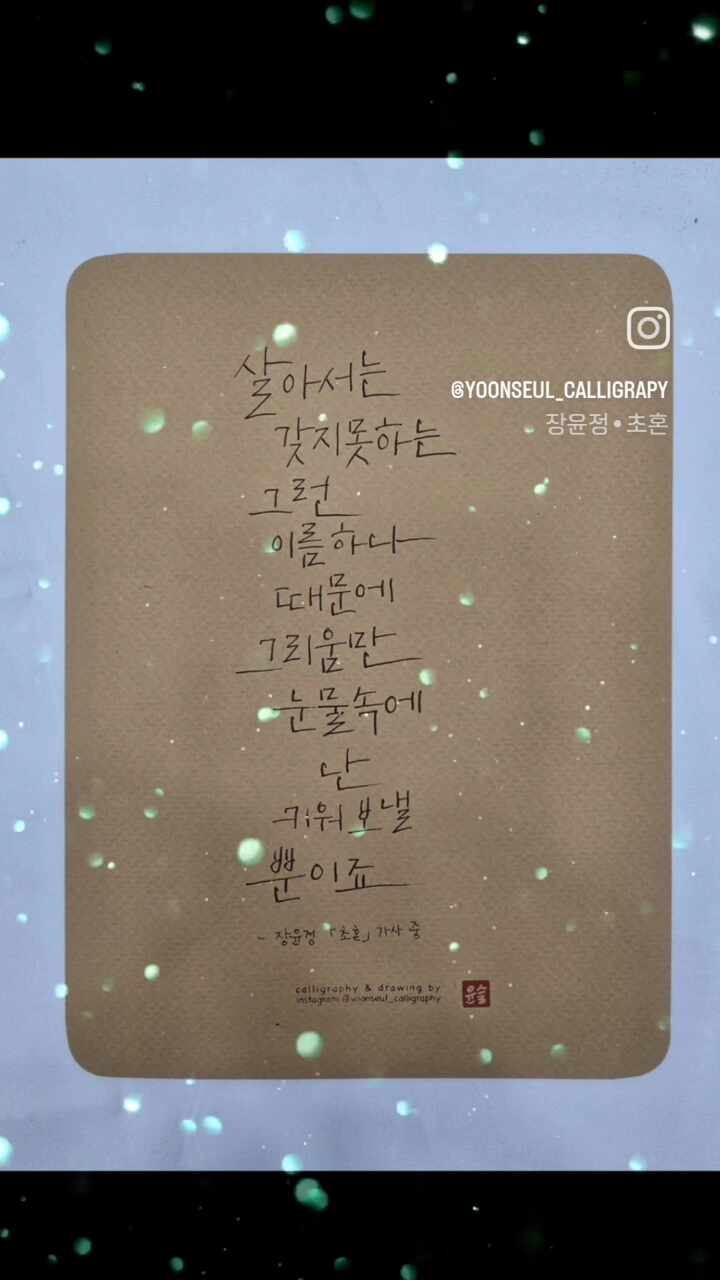 @YOONSEUL_CALLIGRAPY
장윤정 • 초혼
살아서는
갖지못하는
그런
이름하나
때문에
그리움만
눈물속에
난
키워보낼
뿐이죠
- 장윤정 「초혼」 가사 중
calligraphy & drawing by
instagram @yoonseul_calligraphy
윤슬